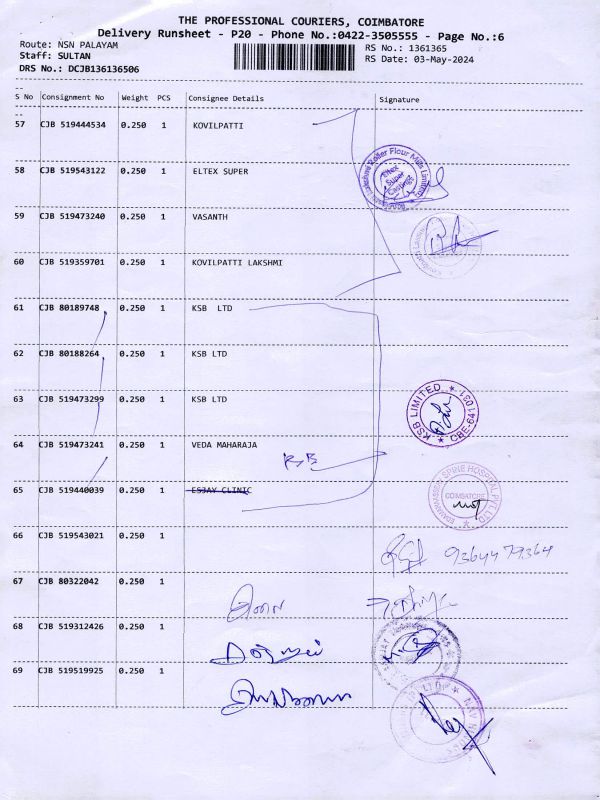 THE PROFESSIONAL COURIERS, COIMBATORE
Delivery Runsheet - P20 - Phone No.:0422-3505555 - Page No.:6
Route: NSN PALAYAM
RS No.: 1361365
Staff: SULTAN
RS Date: 03-May-2024
DRS No.: DCJB136136506
S No Consignment No Weight PCS Consignee Details Signature
57 CJB 519444534 0.250 1 KOVILPATTI
58 CJB 519543122 0.250 1 ELTEX SUPER
Eltex
Super
Castings
59 CJB 519473240 0.250 1 VASANTH
60 CJB 519359701 0.250 1 KOVILPATTI LAKSHMI
61 CJB 80189748 0.250 1 KSB LTD
62 CJB 80188264 0.250 1 KSB LTD
63 CJB 519473299 0.250 1 KSB LTD
KSB LIMITED
CBE-641 031
64 CJB 519473241 0.250 1 VEDA MAHARAJA
65 CJB 519440039 0.250 1 ESJAY CLINIC
SPINE HOSPITAL PVT LTD
COIMBATORE
66 CJB 519543021 0.250 1
9364479364
67 CJB 80322042 0.250 1
68 CJB 519312426 0.250 1
69 CJB 519519925 0.250 1